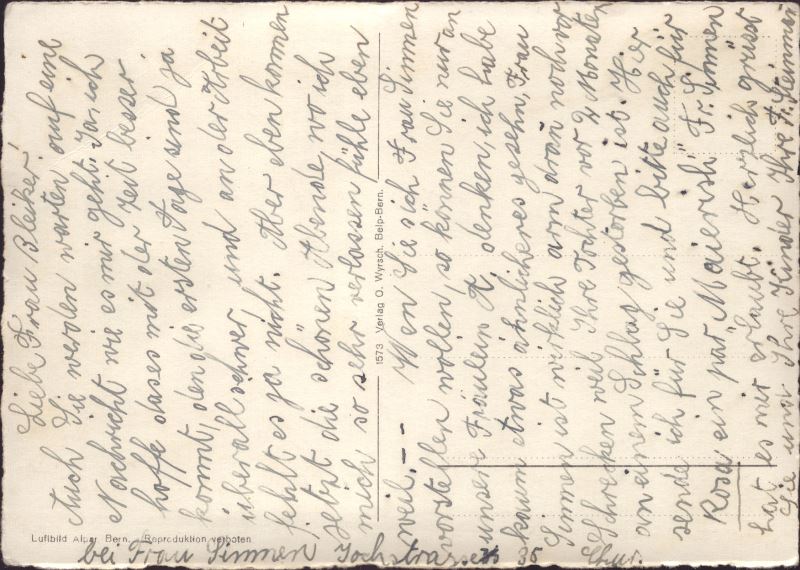 Liebe Frau Bleiker!
Auch Sie werden warten auf eine
Nachricht wie es mir geht. Ja, ich
hoffe dases mit der Zeit besser
komt, den die ersten Tage sind ja
überall schwer, und an der Arbeit
fehlt es ja nicht. Aber eben kommen
jetzt die schönen Abende, wo ich
mich so sehr verlassen fühle eben
weil. --
Wen Sie sich Frau Simmen
vorstellen wollen, so können Sie nur an
unsere Fräulein A. denken, ich habe
kaum etwas ähnlicheres gesehn, Frau
Simmen ist wirklich arm dran noch vor
Schrecken weil Ihre Tochter vor 2 Monaten
an einem Schlag gestorben ist. Hier
sende ich für Sie und bitte auch für
Rosa ein par Maierisli Fr. Simmen
hat es mir erlaubt. Herzlich grüsst
Sie und Ihre Kinder Ihre F. Steinmer
bei Frau Simmen Jochstrasse 35 Chur.
1573 Verlag O. Wyrsch, Belp-Bern.
Luftbild Alpar, Bern. Reproduktion verboten